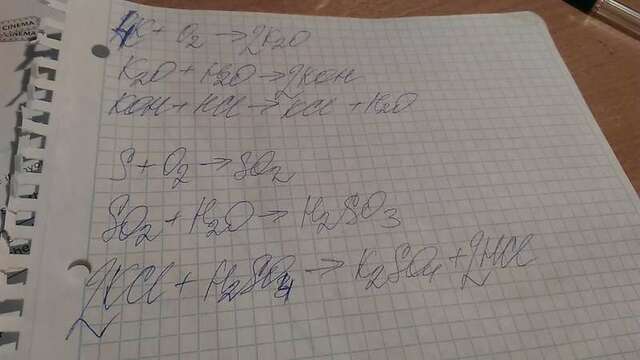 4K + O2 → 2K2O
K2O + H2O → 2KOH
KOH + HCl → KCl + H2O
S + O2 → SO2
SO2 + H2O → H2SO3
2KCl + H2SO4 → K2SO4 + 2HCl
CINEMA
CINEMA